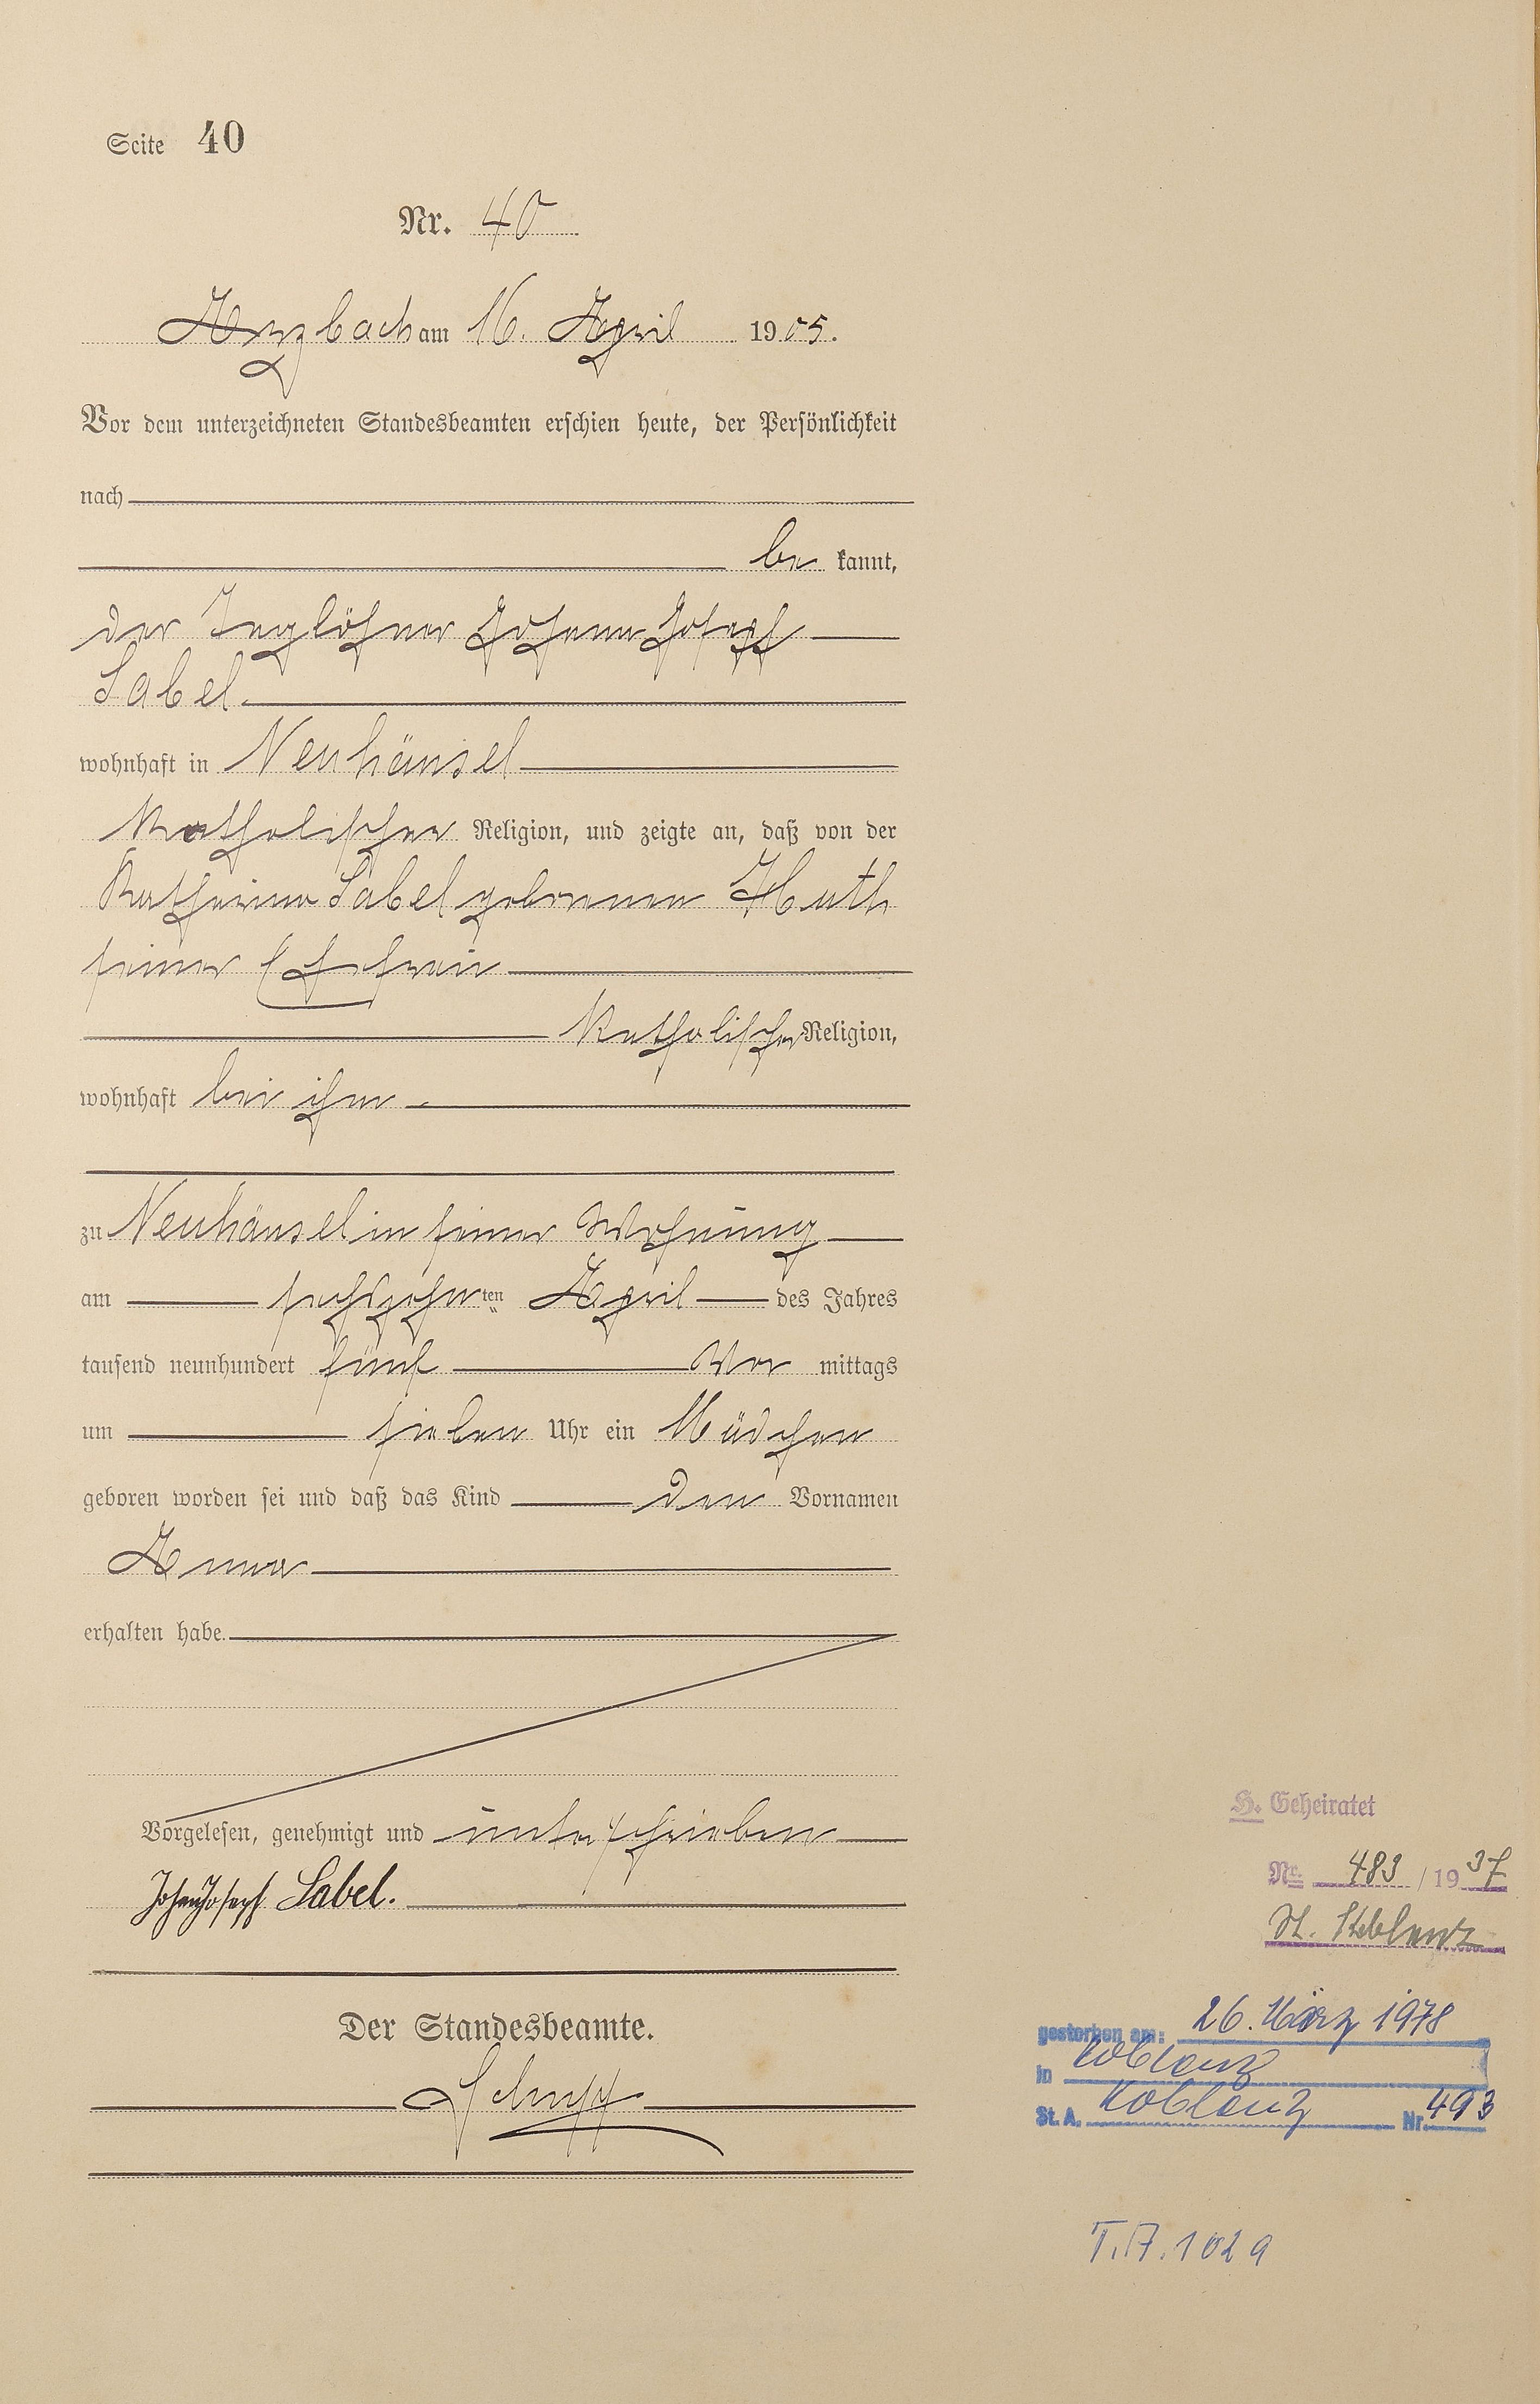 Seite 40
Nr. 40
Arzbach am 16. April 1905.
Vor dem unterzeichneten Standesbeamten erschien heute, der Persönlichkeit
nach
be kannt,
der Taglöhner Johann Josef
Sabel.
wohnhaft in Neuhäusel
katholischer Religion, und zeigte an, daß von der
Katharina Sabel geborenen Huth
seiner Ehefrau
katholischer Religion,
wohnhaft bei ihm
zu Neuhäusel in seiner Wohnung
am sechszehnten April des Jahres
tausend neunhundert fünf Vor mittags
um sieben Uhr ein Mädchen
geboren worden sei und daß das Kind den Vornamen
Anna
erhalten habe.
Vorgelesen, genehmigt und unterschrieben
Johann Joseph Sabel.
Der Standesbeamte.
Schupp
H. Geheiratet
Nr. 483 / 1937
St. Koblenz
gestorben am: 26. März 1978
in Koblenz
St. A. Koblenz Nr. 493
T.A. 1029